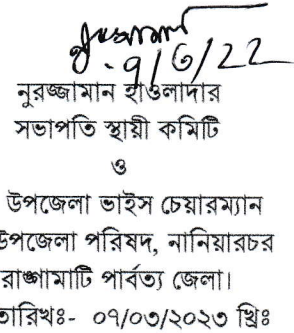 - ৭/৩/22
নুরজ্জামান হাওলাদার
সভাপতি স্থায়ী কমিটি
ও
উপজেলা ভাইস চেয়ারম্যান
উপজেলা পরিষদ, নানিয়ারচর
রাঙ্গামাটি পার্বত্য জেলা।
তারিখঃ- ০৭/০৩/২০২৩ খ্রিঃ